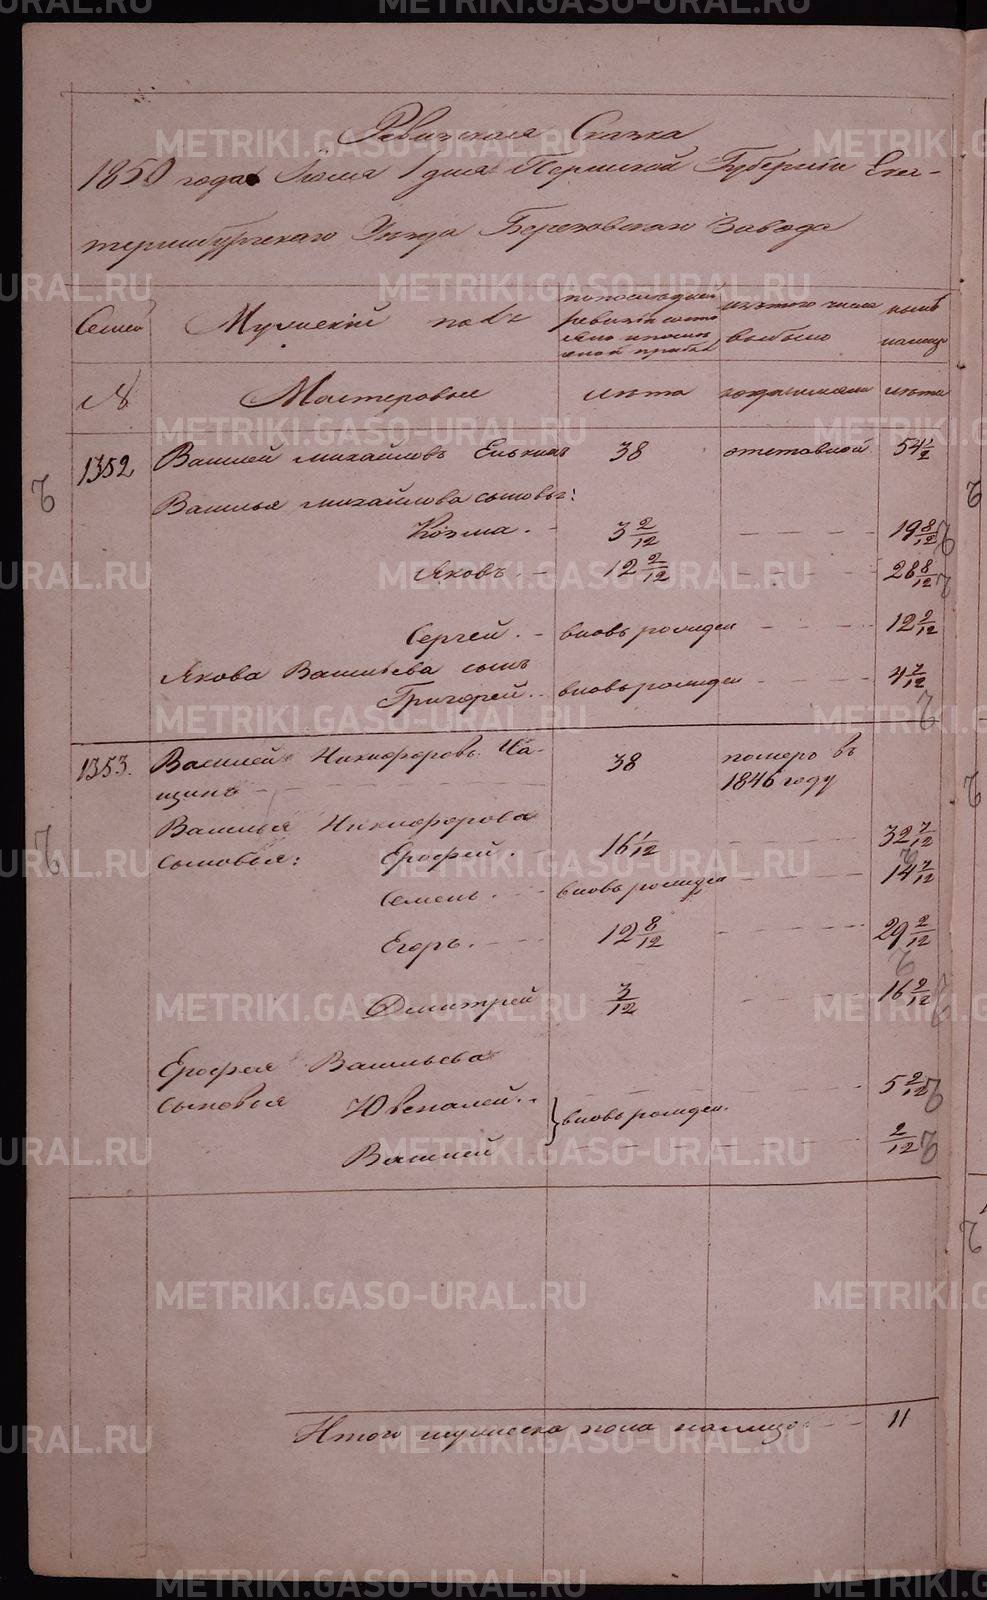 Ревизская Сказка
1850 года Июля 1 дня Пермской Губернiи Ека-
теринбургскаго Уезда Березовскаго Завода
Семей Мужескiй полъ по последней ревизiи состо яло и после оной прибыло изъ того числа выбыло ныне налицо
№ Мастеровые лета когда именно лета
1352 Василей Михайловъ Елькинъ 38 отставной 54 1/2
Василья Михайлова сыновья:
Козма. 3 2/12 19 8/12
Яковъ. 12 2/12 28 8/12
Сергей. вновь рожден 12 2/12
Якова Васильева сынъ
Григорей. вновь рожден 4 7/12
1353. Василей Никифоровъ Ча- 38 померъ въ
щинъ 1846 году
Василья Никифорова
сыновья: Ерофей. 16 1/12 32 7/12
Семенъ. вновь рожден 14 7/12
Егоръ. 12 8/12 29 2/12
Дмитрей 3/12 16 2/12
Ерофея Васильева
сыновья Ювеналей. 5 2/12
} вновь рожден.
Василей 2/12
Итого мужеска пола налицо 11
METRIKI.GASO-URAL.RU